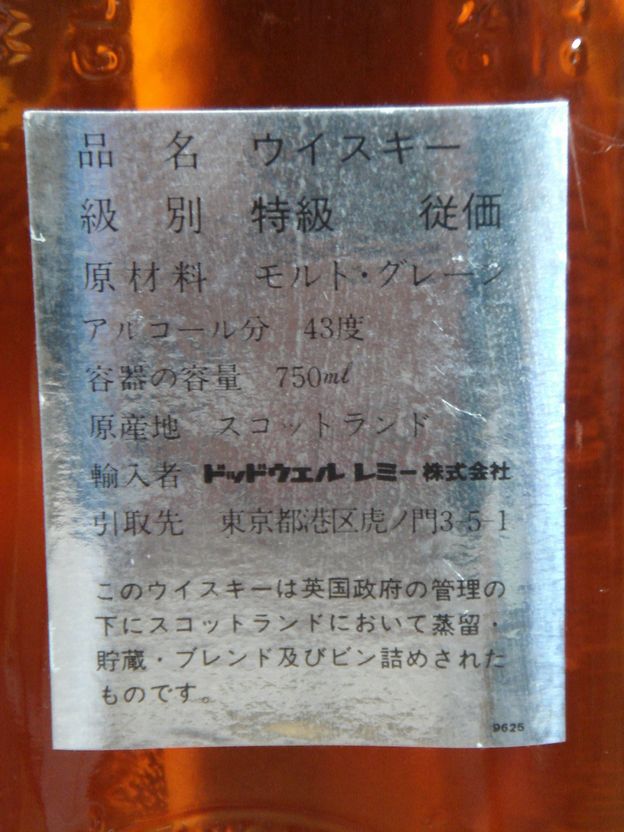 品名 ウイスキー
級別 特級 従価
原材料 モルト・グレーン
アルコール分 43度
容器の容量 750ml
原産地 スコットランド
輸入者 ドッドウエル レミー株式会社
引取先 東京都港区虎ノ門3-5-1
このウイスキーは英国政府の管理の
下にスコットランドにおいて蒸留・
貯蔵・ブレンド及びビン詰めされた
ものです。
9625